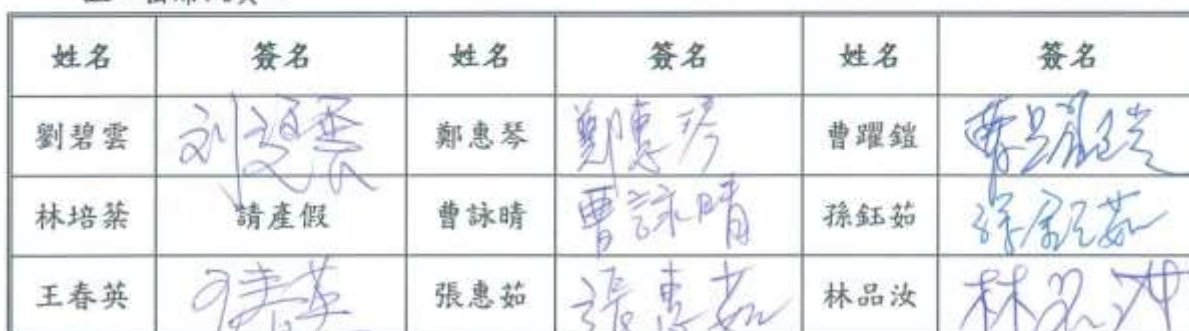 姓名 簽名 姓名 簽名 姓名 簽名
劉碧雲 刘碧雲 鄭惠琴 鄭惠琴 曹躍鎧 曹躍鎧
林培蓁 請產假 曹詠晴 曹詠晴 孫鈺茹 孫鈺茹
王春英 王春英 張惠茹 張惠茹 林品汝 林品汝